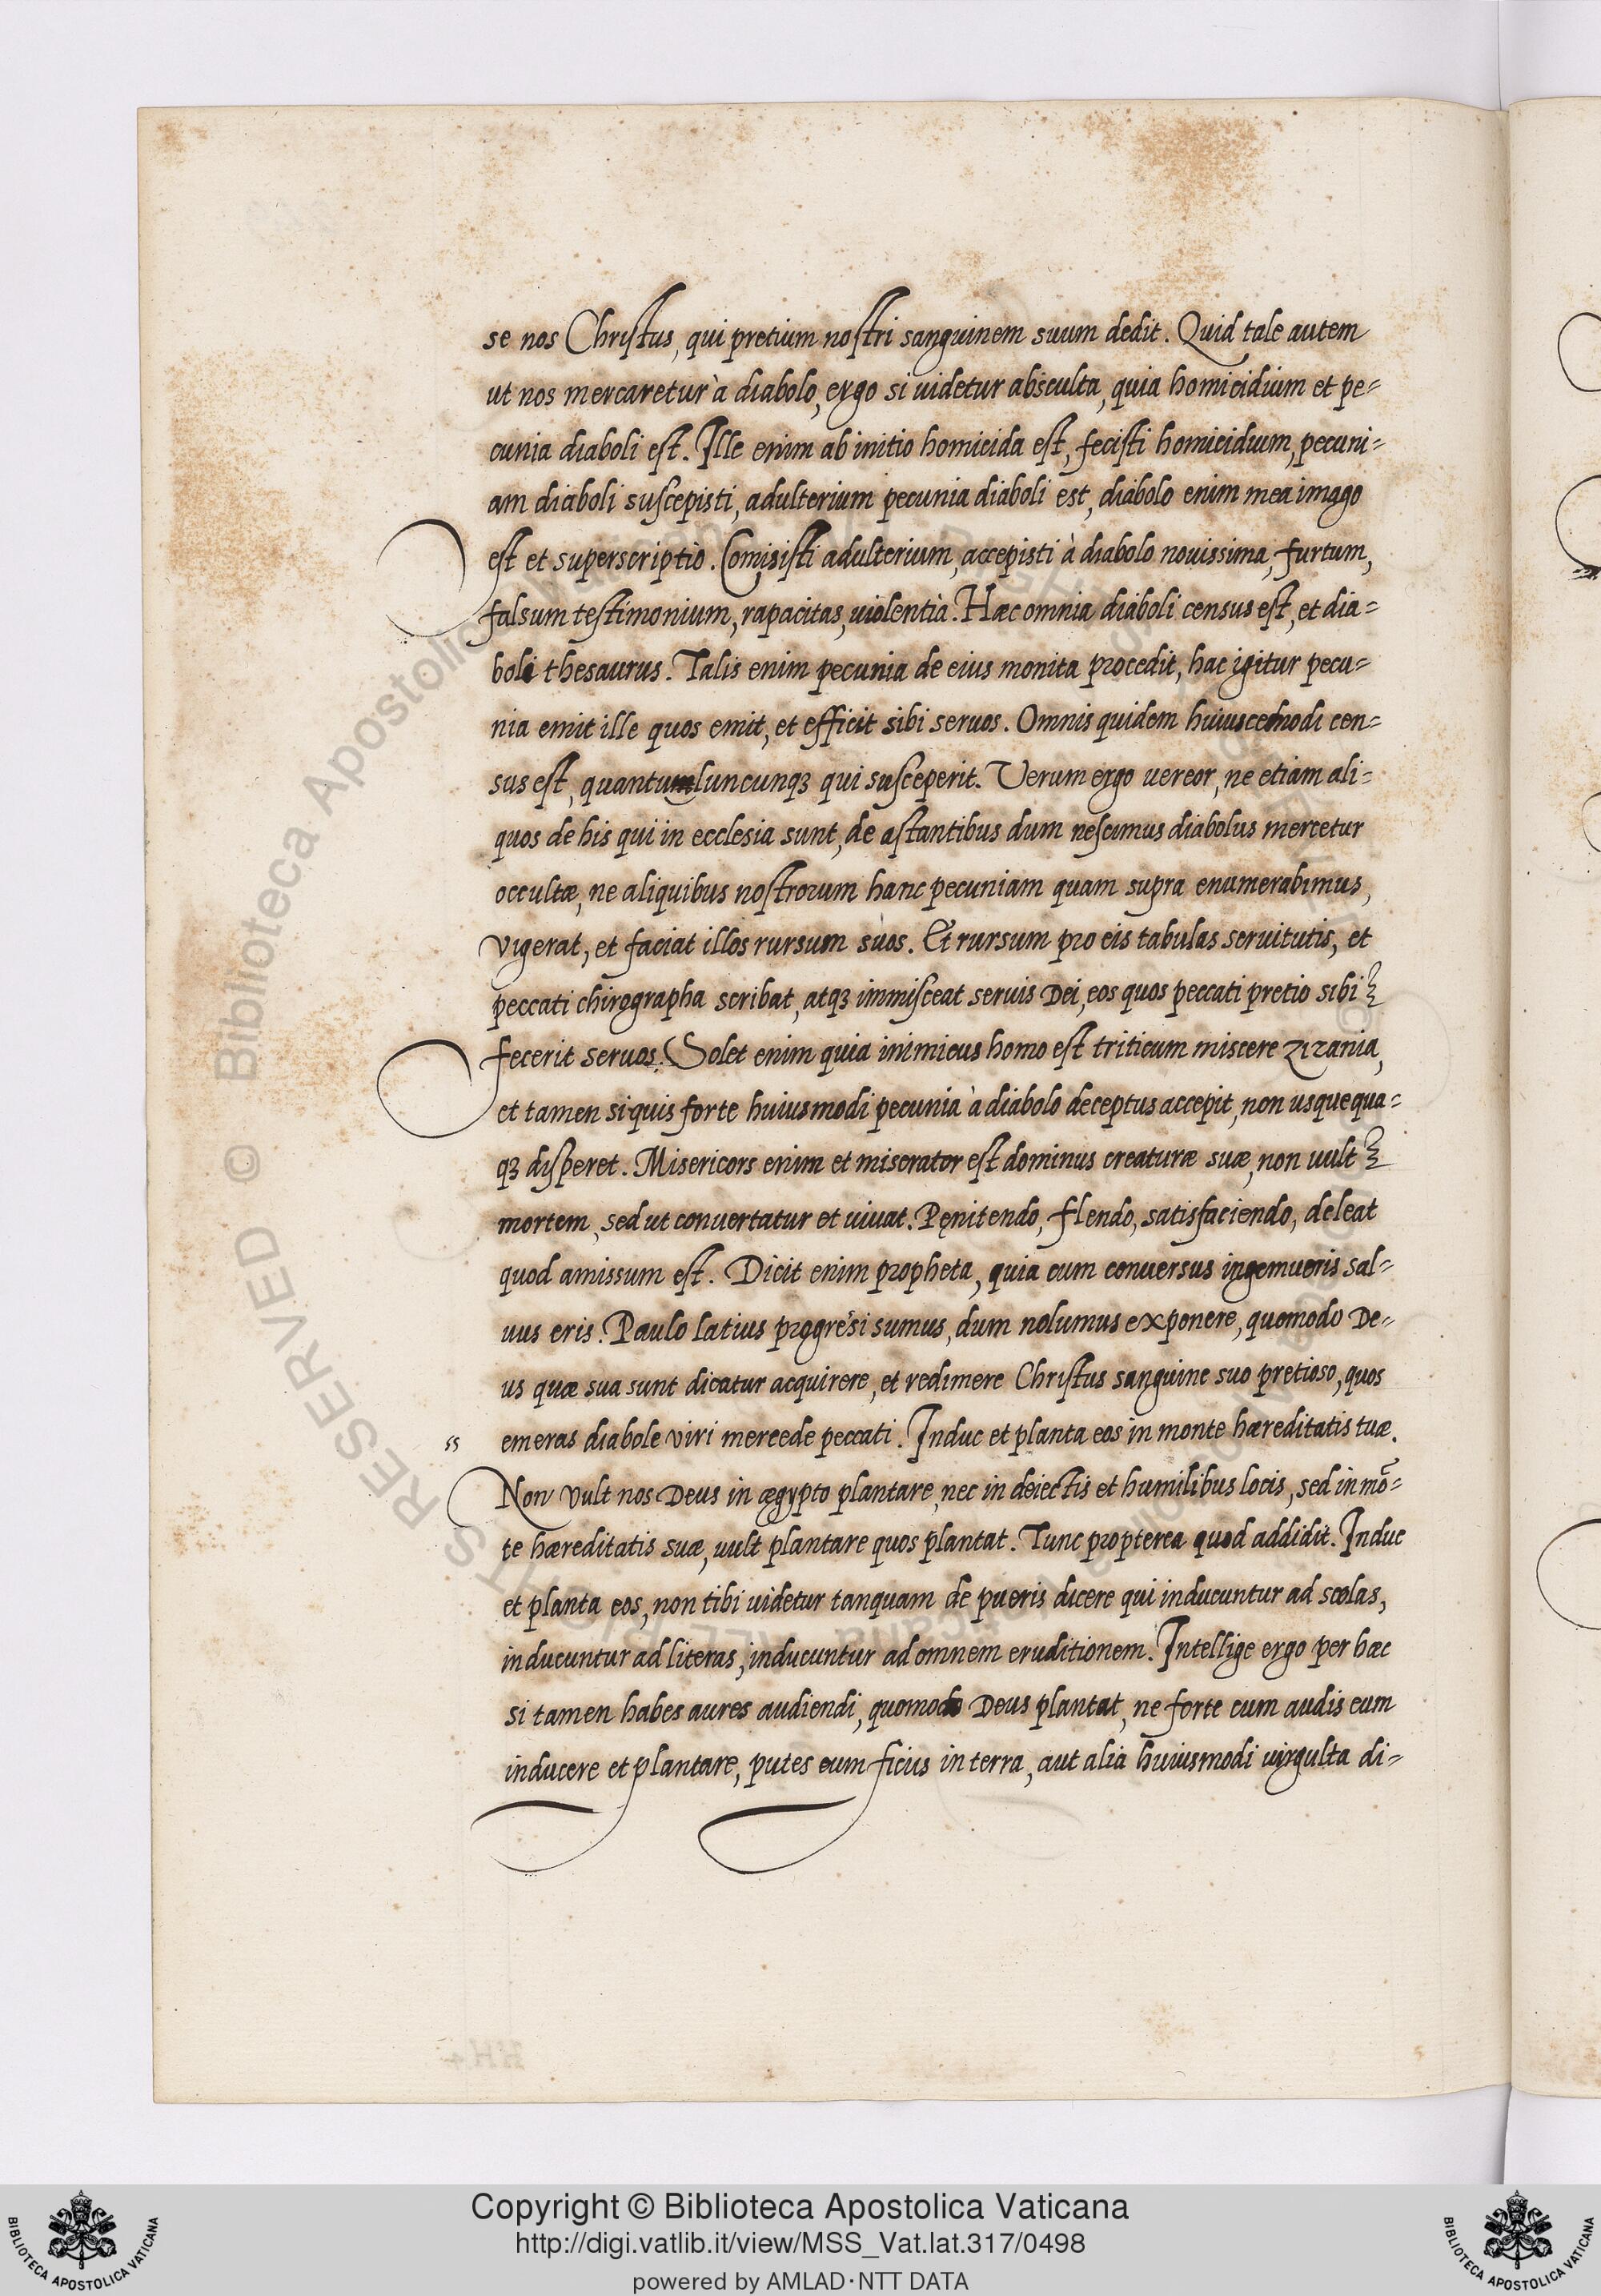 se nos Christus, qui pretium nostri sanguinem suum dedit. Quid tale autem
ut nos mercaretur à diabolo, ergo si uidetur absculta, quia homicidium et pe=
cunia diaboli est. Ille enim ab initio homicida est, fecisti homicidium, pecuni=
am diaboli suscepisti, adulterium pecunia diaboli est, diabolo enim mea imago
est et superscriptio. Comisisti adulterium, accepisti à diabolo nouissima, furtum,
falsum testimonium, rapacitas, uiolentia. Hæc omnia diaboli census est, et dia=
boli thesaurus. Talis enim pecunia de eius monita procedit, hac igitur pecu=
nia emit ille quos emit, et efficit sibi seruos. Omnis quidem huiuscemodi cen=
sus est, qui susceperit. Verum ergo uereor, ne etiam ali=
quos de his qui in ecclesia sunt, de astantibus dum nescimus diabolus mercetur
occultæ, ne aliquibus nostrorum hanc pecuniam quam supra enumerabimus,
vigerat, et faciat illos rursum suos. Et rursum pro eis tabulas seruitutis, et
peccati chirographa scribat, atqȝ immisceat seruis Dei, eos quos peccati pretio sibi
fecerit seruos. Solet enim quia inimicus homo est triticum miscere zizania,
et tamen si quis forte huiusmodi pecunia à diabolo deceptus accepit, non usquequa=
qȝ disperet. Misericors enim et miserator est dominus creaturæ suæ, non uult
mortem, sed ut conuertatur et uiuat. Pęnitendo, flendo, satisfaciendo, deleat
quod amissum est. Dicit enim propheta, quia cum conuersus ingemueris sal=
uus eris. Paulo latius progresi sumus, dum nolumus exponere, quomodo De=
us quæ sua sunt dicatur acquirere, et redimere Christus sanguine suo pretioso, quos
emeras diabole viri mercede peccati. Induc et planta eos in monte hæreditatis tuæ.
Non vult nos Deus in ægypto plantare, nec in deiectis et humilibus locis, sed in mō=
te hæreditatis suæ, uult plantare quos plantat. Tunc propterea quod addidit. Induc
et planta eos, non tibi uidetur tanquam de pueris dicere qui inducuntur ad scolas,
inducuntur ad literas, inducuntur ad omnem eruditionem. Intellige ergo per hæc
si tamen habes aures audiendi, quomodo Deus plantat, ne forte cum audis eum
inducere et plantare, putes eum ficus in terra, aut alia huiusmodi uirgulta di=
Copyright © Biblioteca Apostolica Vaticana
http://digi.vatlib.it/view/MSS_Vat.lat.317/0498
powered by AMLAD·NTT DATA
BIBLIOTECA APOSTOLICA VATICANA
BIBLIOTECA APOSTOLICA VATICANA